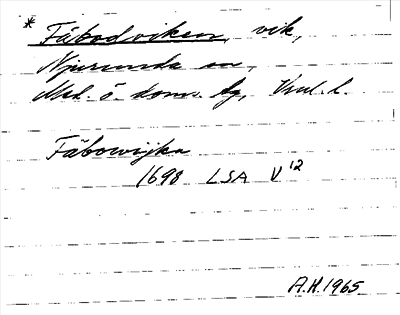 * Fäbodviken, vik,
Njurunda sn,
Med. ö. doms. tg, Vnl. l.
Fäbowijka
1698 LSA V 12
A.H. 1965